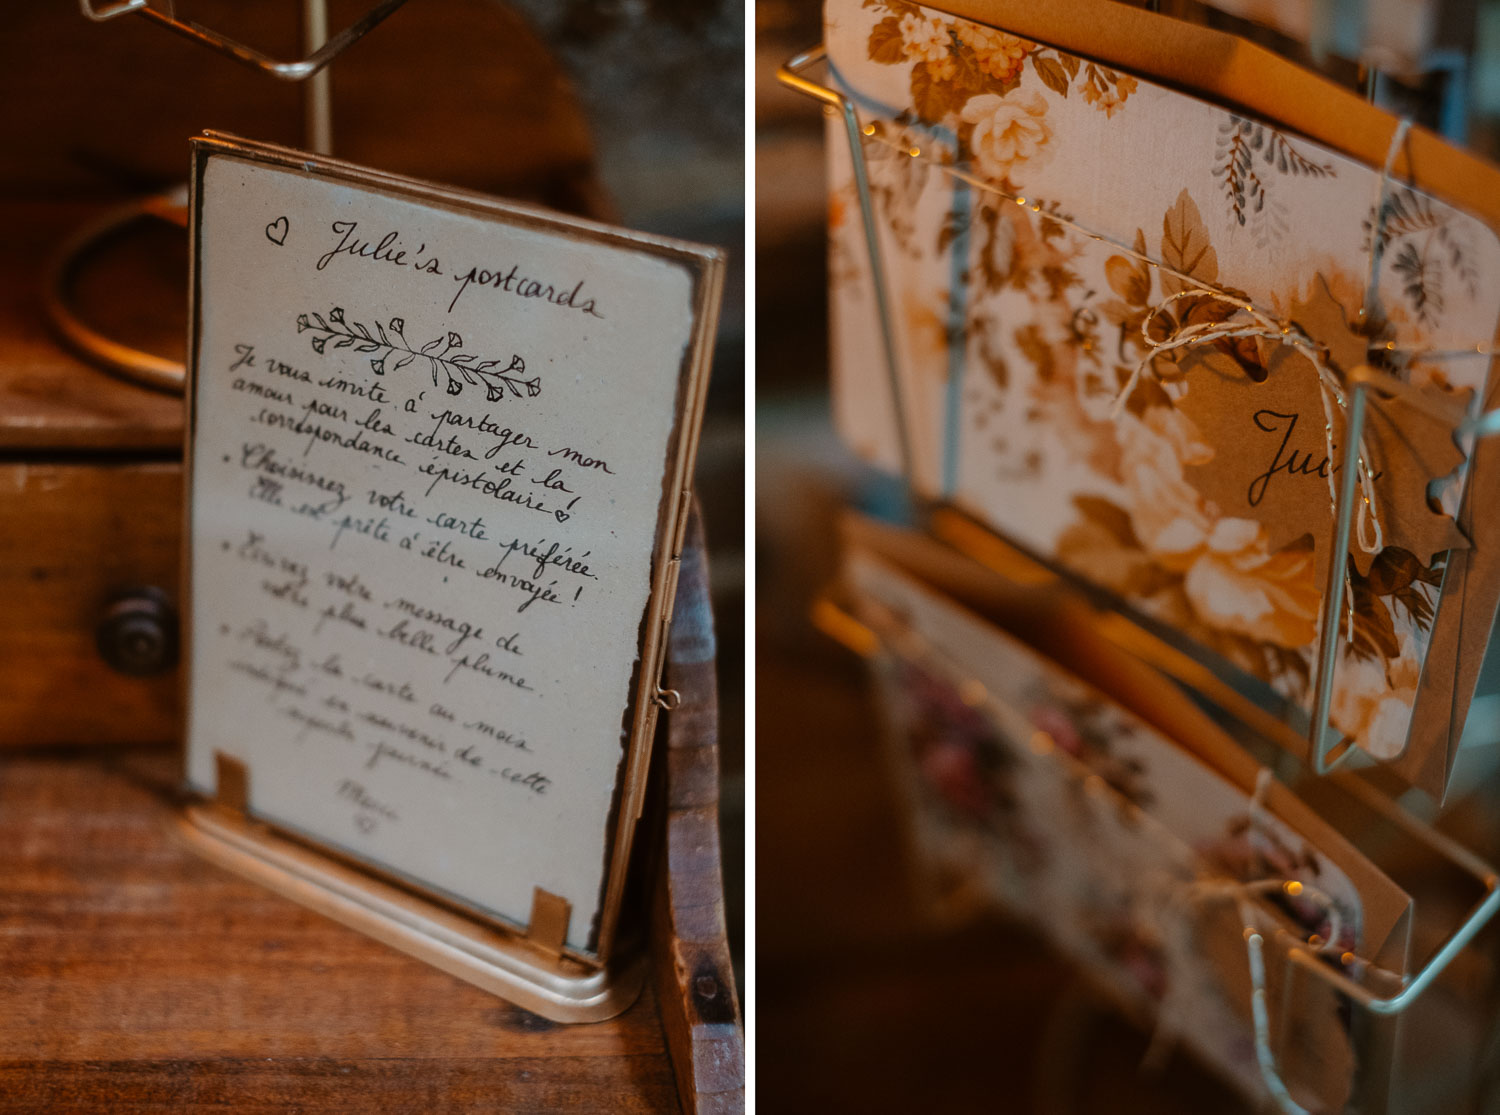 Julie's postcards
Je vous invite à partager mon
amour pour les cartes et la
correspondance épistolaire!
• Choisissez votre carte préférée.
Elle est prête à être envoyée!
• Ecrivez votre message de
votre plus belle plume.
• Postez la carte au mois
en souvenir de cette
journée
Merci
Jui